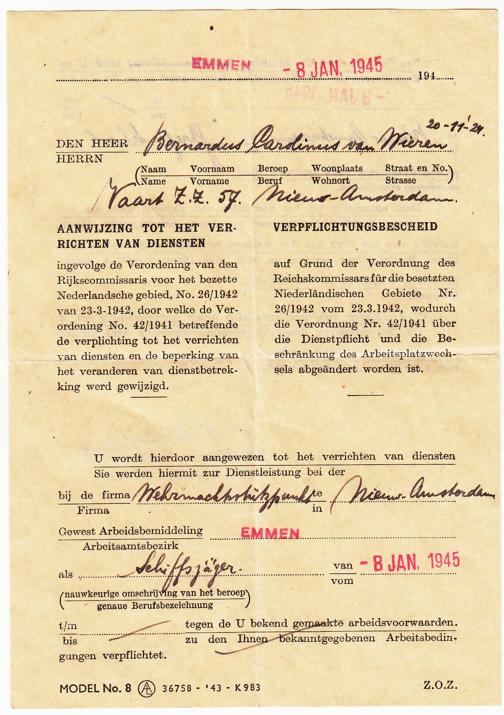 EMMEN - 8 JAN. 1945 194
20-11-24.
DEN HEER Bernardus Carolinus van Wieren
HERRN
(Naam Voornaam Beroep Woonplaats Straat en No.)
(Name Vorname Beruf Wohnort Strasse)
Vaart Z.Z. 57. Nieuw-Amsterdam.
AANWIJZING TOT HET VER-
RICHTEN VAN DIENSTEN
ingevolge de Verordening van den
Rijkscommissaris voor het bezette
Nederlandsche gebied, No. 26/1942
van 23-3-1942, door welke de Ver-
ordening No. 42/1941 betreffende
de verplichting tot het verrichten
van diensten en de beperking van
het veranderen van dienstbetrek-
king werd gewijzigd.
VERPFLICHTUNGSBESCHEID
auf Grund der Verordnung des
Reichskommissars für die besetzten
Niederländischen Gebiete Nr.
26/1942 vom 23.3.1942, wodurch
die Verordnung Nr. 42/1941 über
die Dienstpflicht und die Be-
schränkung des Arbeitsplatzwech-
sels abgeändert worden ist.
U wordt hierdoor aangewezen tot het verrichten van diensten
Sie werden hiermit zur Dienstleistung bei der
bij de firma Wehrmachtstützpunkt te Nieuw-Amsterdam
Firma in
Gewest Arbeidsbemiddeling EMMEN
Arbeitsamtsbezirk
als Schiffsjäger. van - 8 JAN. 1945
vom
(nauwkeurige omschrijving van het beroep)
genaue Berufsbezeichnung
t/m tegen de U bekend gemaakte arbeidsvoorwaarden.
bis zu den Ihnen bekanntgegebenen Arbeitsbedin-
gungen verpflichtet.
MODEL No. 8 AA 36758 - '43 - K 983 Z.O.Z.